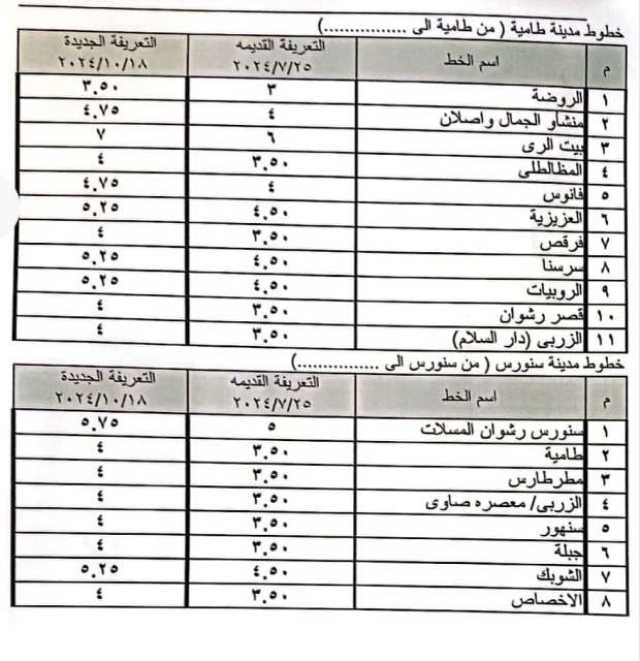 خطوط مدينة طامية ( من طامية الى ................)
م اسم الخط التعريفة القديمه ٢٠٢٤/٧/٢٥ التعريفة الجديدة ٢٠٢٤/١٠/١٨
١ الروضة ٣ ٣.٥٠
٢ منشاو الجمال واصلان ٤ ٤.٧٥
٣ بيت الرى ٦ ٧
٤ المظالطلى ٣.٥٠ ٤
٥ فانوس ٤ ٤.٧٥
٦ العزيزية ٤.٥٠ ٥.٢٥
٧ فرقص ٣.٥٠ ٤
٨ سرسنا ٤.٥٠ ٥.٢٥
٩ الروبيات ٤.٥٠ ٥.٢٥
١٠ قصر رشوان ٣.٥٠ ٤
١١ الزربى (دار السلام) ٣.٥٠ ٤
خطوط مدينة سنورس ( من سنورس الى ................)
م اسم الخط التعريفة القديمه ٢٠٢٤/٧/٢٥ التعريفة الجديدة ٢٠٢٤/١٠/١٨
١ سنورس رشوان المسلات ٥ ٥.٧٥
٢ طامية ٣.٥٠ ٤
٣ مطرطارس ٣.٥٠ ٤
٤ الزربى/ معصره صاوى ٣.٥٠ ٤
٥ سنهور ٣.٥٠ ٤
٦ جبلة ٣.٥٠ ٤
٧ الشوبك ٤.٥٠ ٥.٢٥
٨ الاخصاص ٣.٥٠ ٤